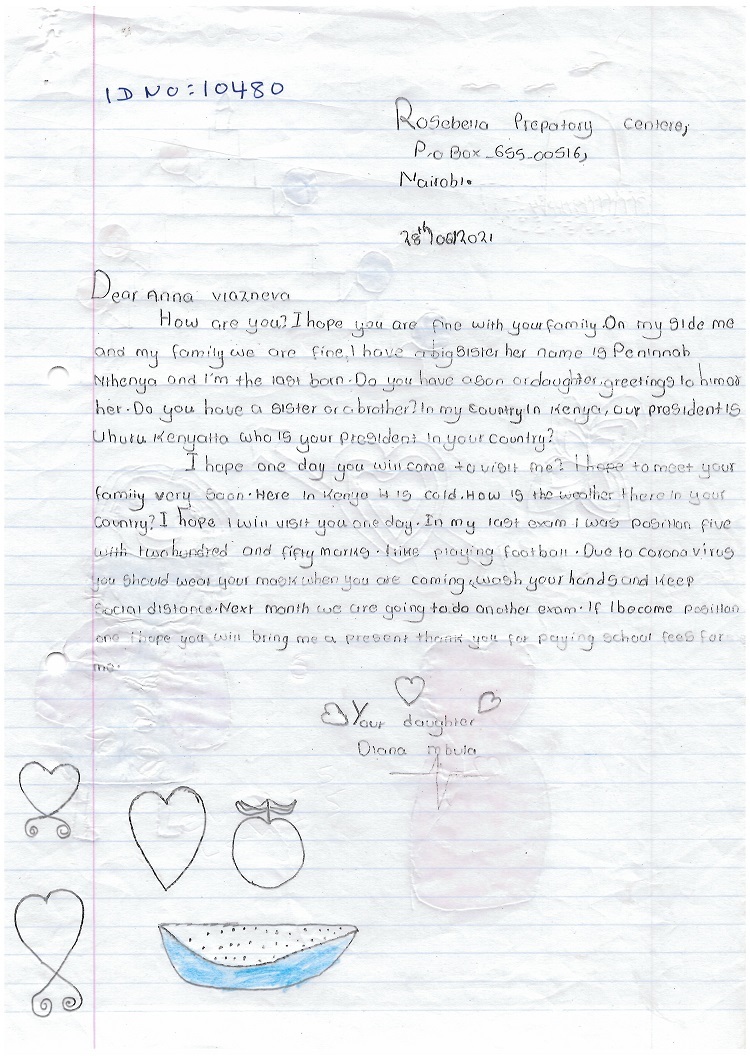 ID NO: 10480
Rosebella Prepatory Centere,
P.o Box _655_00516,
Nairobi.
28th/06/2021
Dear Anna viazneva
How are you? I hope you are fine with your family. On my side me
and my family we are fine. I have a big sister her name is Peninnah
Nthenya and i'm the last born. Do you have a son or daughter, greetings to him or
her. Do you have a sister or a brother? In my country in Kenya, our president is
Uhuru Kenyatta who is your president in your country?
I hope one day you will come to visit me? I hope to meet your
family very soon. Here in Kenya it is cold. How is the weather there in your
country? I hope i will visit you one day. In my last exam i was position five
with two hundred and fifty marks. I like playing football. Due to corona virus
you should wear your mask when you are coming, wash your hands and keep
social distance. Next month we are going to do another exam. If I become position
one i hope you will bring me a present thank you for paying school fees for
me.
Your daughter
Diana mbula